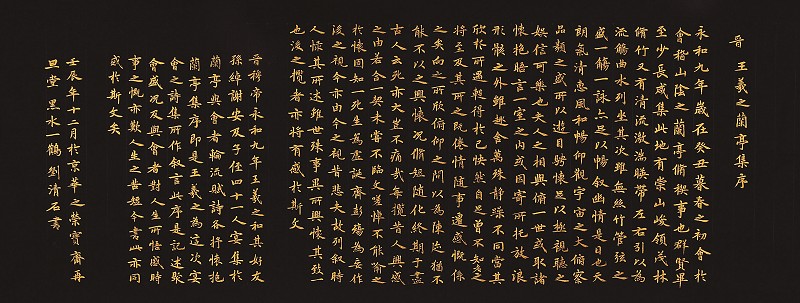 晉 王羲之蘭亭集序
永和九年歲在癸丑暮春之初會於
會稽山陰之蘭亭脩稧事也群賢畢
至少長咸集此地有崇山峻領茂林
脩竹又有清流激湍暎帶左右引以為
流觴曲水列坐其次雖無絲竹管弦之
盛一觴一詠亦足以暢敘幽情是日也天
朗氣清惠風和暢仰觀宇宙之大俯察
品類之盛所以遊目騁懷足以極視聽之
娛信可樂也夫人之相與俯一世或取諸
懷抱晤言一室之內或因寄所托放浪
形骸之外雖趣舍萬殊靜躁不同當其
欣於所遇暫得於己怏然自足曾不知老之
將至及其所之既倦情隨事遷感慨係
之矣向之所欣俯仰之間以為陳迹猶不
能不以之興懷況脩短隨化終期于盡
古人云死亦大豈不痛哉每攬昔人興感
之由若合一契未嘗不臨文嗟悼不能喻之
於懷固知一死生為虛誕齊彭殤為妄作
後之視今亦由今之視昔悲夫故列敘時
人錄其所述雖世殊事異所興懷其致一
也後之攬者亦將有感於斯文
晉穆帝永和九年王羲之和其好友
孫綽謝安及子侄四十一人宴集於
蘭亭與會者輪流賦詩各抒懷抱
蘭亭集序即是王羲之為這次宴
會之詩集所作敘言此序是記述聚
會盛況及與會者對人生所悟感時
事之慨亦歎人生之苦短今書此亦同
感於斯文矣
壬辰年十二月於京華之榮寶齋再
旦堂 黑水一鶴 劉清石書